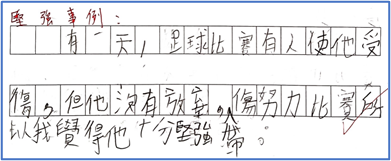 堅強事例：
有一天，足球比賽有人使他受
傷，但他沒有放棄，傷努力比賽所
以我覺得他十分堅強。